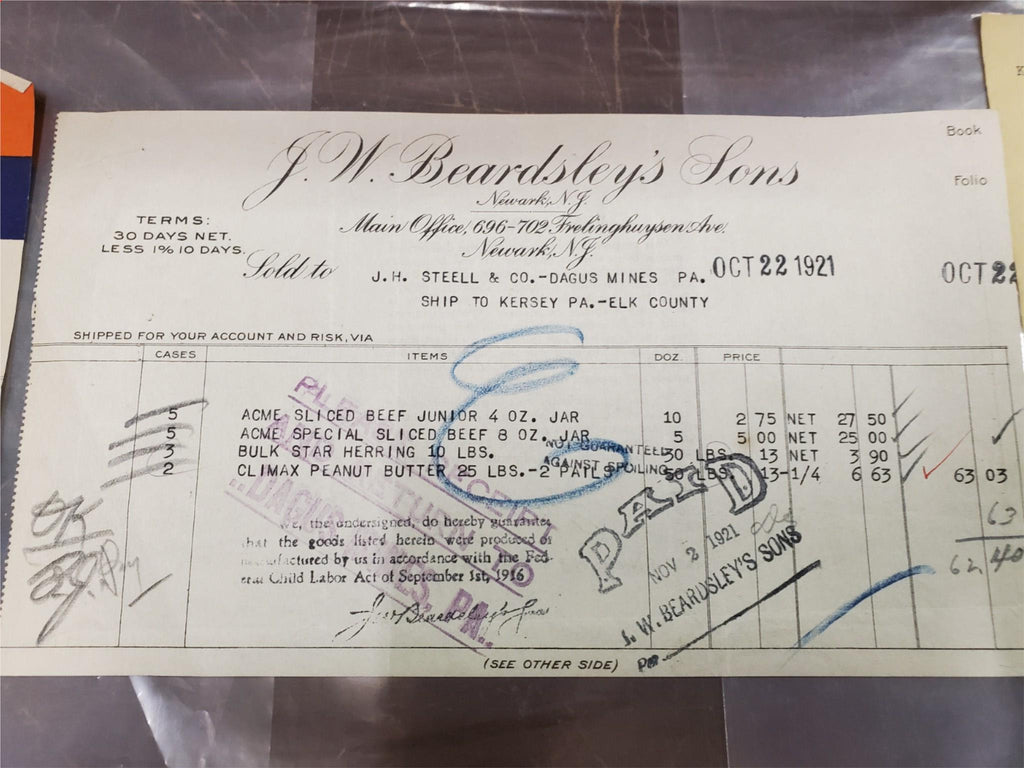 Book
J. W. Beardsley's Sons
Newark, N.J.
Folio
Main Office, 696-702 Frelinghuysen Ave.
Newark, N.J.
TERMS:
30 DAYS NET.
LESS 1% 10 DAYS.
Sold to
J.H. STEELL & CO.-DAGUS MINES PA.
OCT 22 1921
OCT 22
SHIP TO KERSEY PA.-ELK COUNTY
SHIPPED FOR YOUR ACCOUNT AND RISK, VIA
CASES ITEMS DOZ. PRICE
5 ACME SLICED BEEF JUNIOR 4 OZ. JAR 10 2 75 NET 27 50
5 ACME SPECIAL SLICED BEEF 8 OZ. JAR 5 5 00 NET 25 00
3 BULK STAR HERRING 10 LBS. 30 LBS. 13 NET 3 90
2 CLIMAX PEANUT BUTTER 25 LBS.-2 PAILS 50 LBS. 13-1/4 6 63 63 03
NOT GUARANTEED
AGAINST SPOILING
63
62 40
We, the undersigned, do hereby guarantee
that the goods listed herein were produced or
manufactured by us in accordance with the Fed-
eral Child Labor Act of September 1st, 1916
J W Beardsley's Sons
PLEASE RECEIPT
AND RETURN TO
DAGUS MINES, PA.
PAID
NOV 2 1921
J. W. BEARDSLEY'S SONS
Per
OK
(SEE OTHER SIDE)